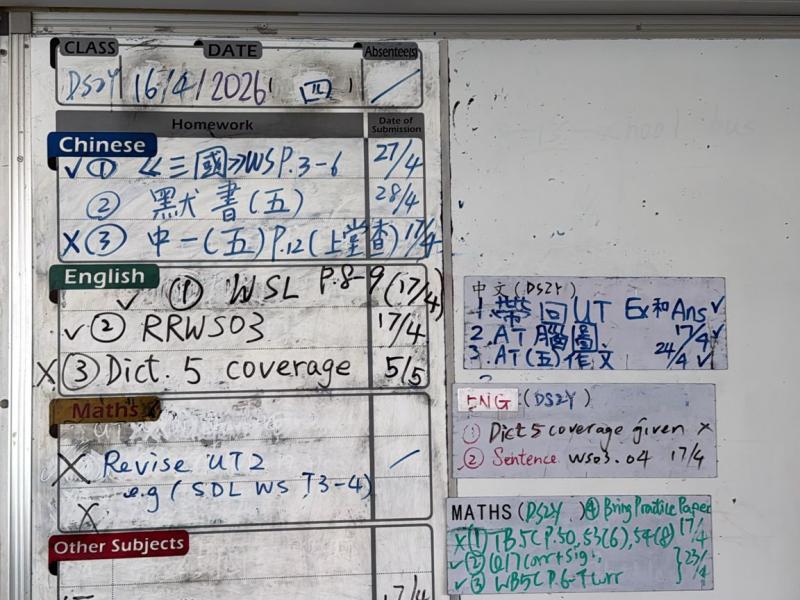 CLASS DATE Absentee(s)
DS2Y 16/4/2026 (四) /
Homework Date of Submission
Chinese
✓ ① 《三國》WS P.3-6 27/4
② 默書(五) 28/4
X ③ 中一(五)P.12(上堂查) 17/4
English
✓ ① WSL P.8-9 (17/4)
✓ ② RRWS03 17/4
X ③ Dict. 5 coverage 5/5
Maths
X Revise UT2 /
e.g (SDL WS T3-4)
X
Other Subjects
17/4
中文(DS2Y)
1. 帶回UT Ex和Ans ✓
2. AT腦圖 17/4 ✓
3. AT(五)作文 24/4 ✓
ENG (DS2Y)
① Dict 5 coverage given X
② Sentence WS03.04 17/4
MATHS (DS2Y) ④ Bring Practice Paper
X (1) TB5C P.50, 53(6), 54(8) 17/4
✓ ② Corr+Sig. } 23/4
✓ ③ WB5C P.6-7 Corr